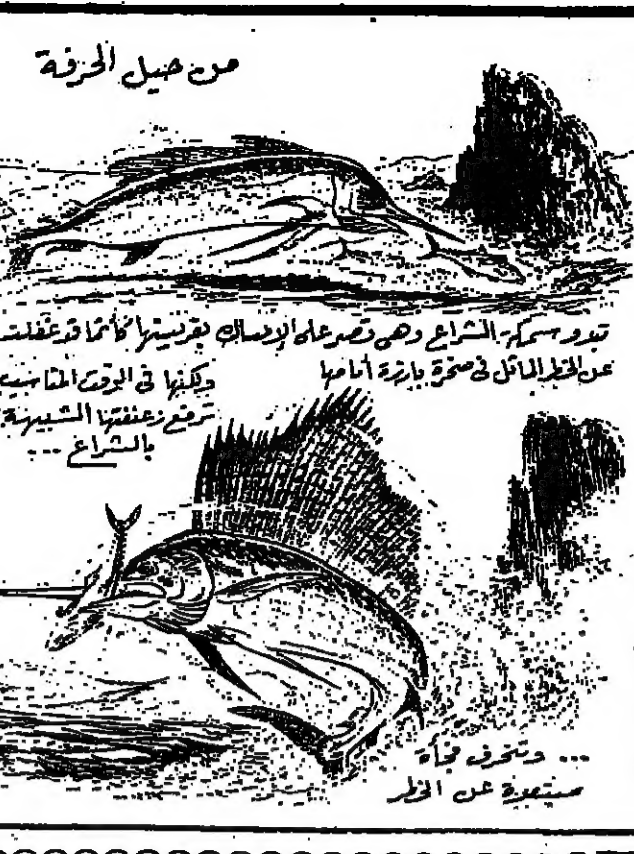 من حيل الحرفة
تبدو سمكة الشراع وهي تصر على الإمساك بفريستها كأنما قد غفلت
عن الخطر الماثل في صخرة بارزة أمامها
ولكنها في الوقت المناسب
ترفع زعنفتها الشبيهة
بالشراع ...
... وتنحرف فجأة
مبتعدة عن الخطر